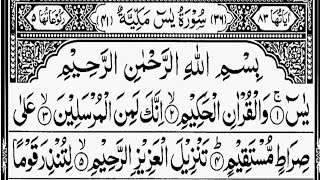 اٰیَاتُهَا ٨٣ (٣٦) سُوْرَةُ یٰسٓ مَكِّیَّةٌ (٤١) رُكُوْعَاتُهَا ٥
بِسْمِ اللّٰهِ الرَّحْمٰنِ الرَّحِیْمِ
یٰسٓ ۝١ وَالْقُرْاٰنِ الْحَكِیْمِ ۝٢ اِنَّكَ لَمِنَ الْمُرْسَلِیْنَ ۝٣ عَلٰی
صِرَاطٍ مُّسْتَقِیْمٍ ۝٤ تَنْزِیْلَ الْعَزِیْزِ الرَّحِیْمِ ۝٥ لِتُنْذِرَ قَوْمًا